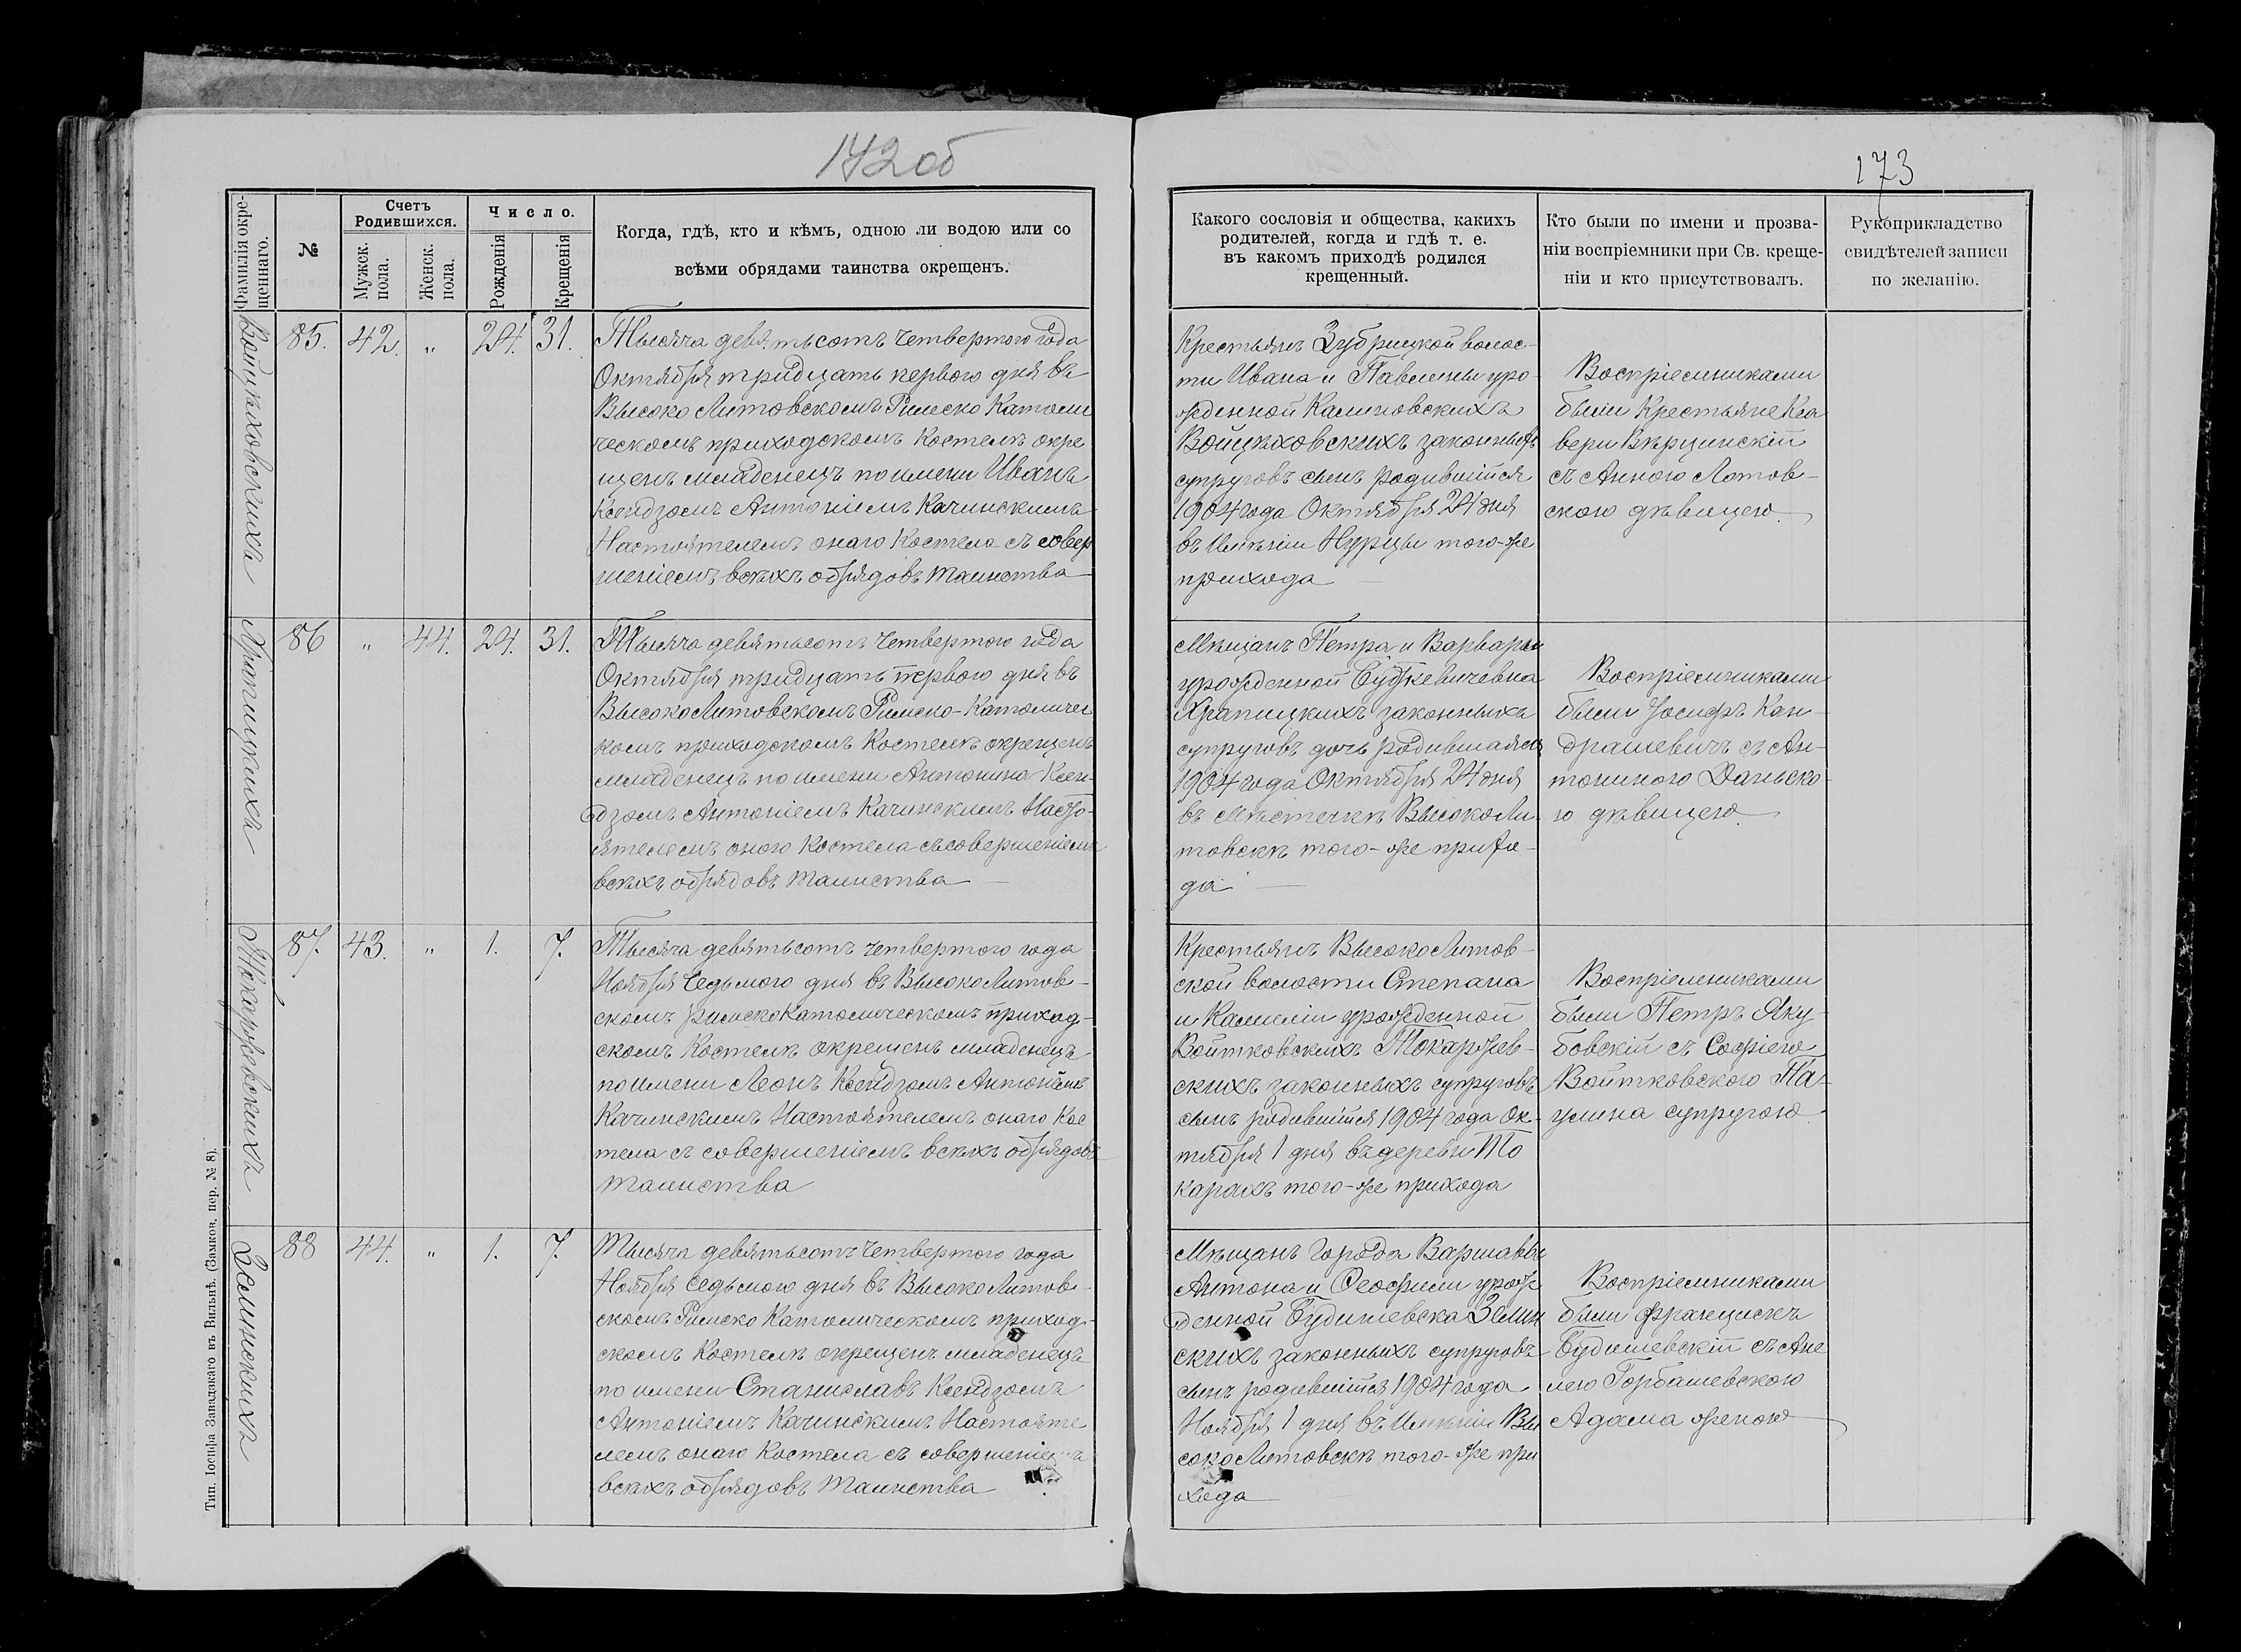 172 об
173
Фамилія окре-
щеннаго.
№
Счетъ
Родившихся.
Мужск.
пола.
Женск.
пола.
Число.
Рожденія
Крещенія
Когда, гдѣ, кто и кѣмъ, одною ли водою или со
всѣми обрядами таинства окрещенъ.
Какого сословія и общества, какихъ
родителей, когда и гдѣ т. е.
въ какомъ приходѣ родился
крещенный.
Кто были по имени и прозва-
ніи воспріемники при Св. креще-
ніи и кто присутствовалъ.
Рукоприкладство
свидѣтелей записи
по желанію.
Войцѣховскихъ
85. 42. „ 24. 31.
Тысяча девятьсотъ четвертого года
Октября тридцать первого дня въ
Высоко Литовскомъ Римско Католи
ческомъ приходскомъ Костелѣ окре
щенъ младенецъ по имени Иванъ
Ксендзомъ Антоніемъ Качинскимъ
Настоятелемъ онаго Костела съ совер
шеніемъ всѣхъ обрядовъ таинства
Крестьянъ Зубрицкой волос-
ти Ивана и Павелины уро-
жденной Калиновскихъ
Войцѣховскихъ законныхъ
супруговъ сынъ родившійся
1904 года Октября 24 дня
въ имѣніи Нурцы того-же
прихода
Воспріемниками
были Крестьяне Кса
вери Вѣрцинскій
съ Анною Лотов-
скою дѣвицею.
Храпицкихъ
86 „ 44. 24. 31.
Тысяча девятьсотъ четвертого года
Октября тридцать первого дня въ
Высоко Литовскомъ Римско-Католичес
комъ приходскомъ Костелѣ окрещенъ
младенецъ по имени Антонина Ксен-
дзомъ Антоніемъ Качинскимъ Насто-
ятелемъ оного Костела съ совершеніемъ
всѣхъ обрядовъ таинства
Мѣщанъ Петра и Варвары
урожденной Будкевичевна
Храпицкихъ законныхъ
супруговъ дочь родившаяся
1904 года Октября 24 дня
въ мѣстечкѣ Высоко Ли-
товскѣ того-же прихо-
да
Воспріемниками
были Іосифъ Кан-
драшевичъ съ Ан-
тониною Даньско-
ю дѣвицею.
Токаржевскихъ
87. 43. „ 1. 7.
Тысяча девятьсотъ четвертого года
Ноября Седьмого дня въ Высоко Литов-
скомъ Римско Католическомъ приход-
скомъ Костелѣ окрешенъ младенецъ
по имени Леонъ Ксендзомъ Антоніемъ
Качинскимъ Настоятелемъ онаго Кос
тела съ совершеніемъ всѣхъ обрядовъ
таинства
Крестьянъ Высоко Литов-
ской волости Степана
и Камиліи урожденной
Войтковскихъ Токаржев-
скихъ законныхъ супруговъ
сынъ родившійся 1904 года Ок-
тября 1 дня въ деревни То
карахъ того-же прихода
Воспріемниками
были Петръ Яку-
бовскій съ Софіею
Войтковского Па-
улина супругою.
Земинскихъ
88 44. „ 1. 7.
Тысяча девятьсотъ четвертого года
Ноября седьмого дня въ Высоко Литов-
скомъ Римско Католическомъ приход-
скомъ Костелѣ окрещенъ младенецъ
по имени Станиславъ Ксендзомъ
Антоніемъ Качинскимъ Настояте
лемъ онаго Костела съ совершеніемъ
всѣхъ обрядовъ таинства
Мѣщанъ Города Варшавы
Антона и Ѳеофили урож
денной Будишевска Земин
скихъ законныхъ супруговъ
сынъ родившійся 1904 года
Ноября 1 дня въ Имѣніи Вы
соко Литовскѣ того-же при
хода
Воспріемниками
были Францискъ
Будишевскій съ Ане
лею Горбашевского
Адама женою
Тип. Іосифа Завадзкаго въ Вильнѣ. (Замков. пер. № 8).